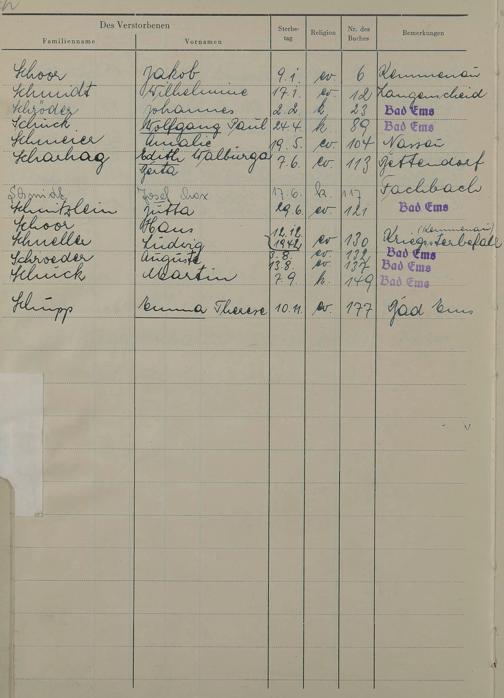 Des Verstorbenen
Familienname Vornamen Sterbe-tag Religion Nr. des Buches Bemerkungen
Schoor Jakob 9.1. ev 6 Kemmenau
Schmidt Wilhelmine 17.1. ev 12 Langenscheid
Schröder Johannes 2.2. k 23 Bad Ems
Schuck Wolfgang Paul 24.4 k 89 Bad Ems
Schmeier Amalie 19.5. ev 104 Nassau
Scharhag Edith Walburga 7.6. ev. 113 Dettendorf
Gerta
Schmidt Josef Max 17.6. k. 117 Fachbach
Schnitzlein Jutta 29.6 ev 121 Bad Ems
Schoor Hans 12.12. 1942 ev 130 Kriegssterbefälle (Kemmenau)
Schneller Ludwig
Schroeder Auguste 3.8. ev. 132 Bad Ems
13.8. ev. 137 Bad Ems
Schuck Martin 7.9. k. 149 Bad Ems
Schupp Emma Therese 10.11. ev. 177 Bad Ems